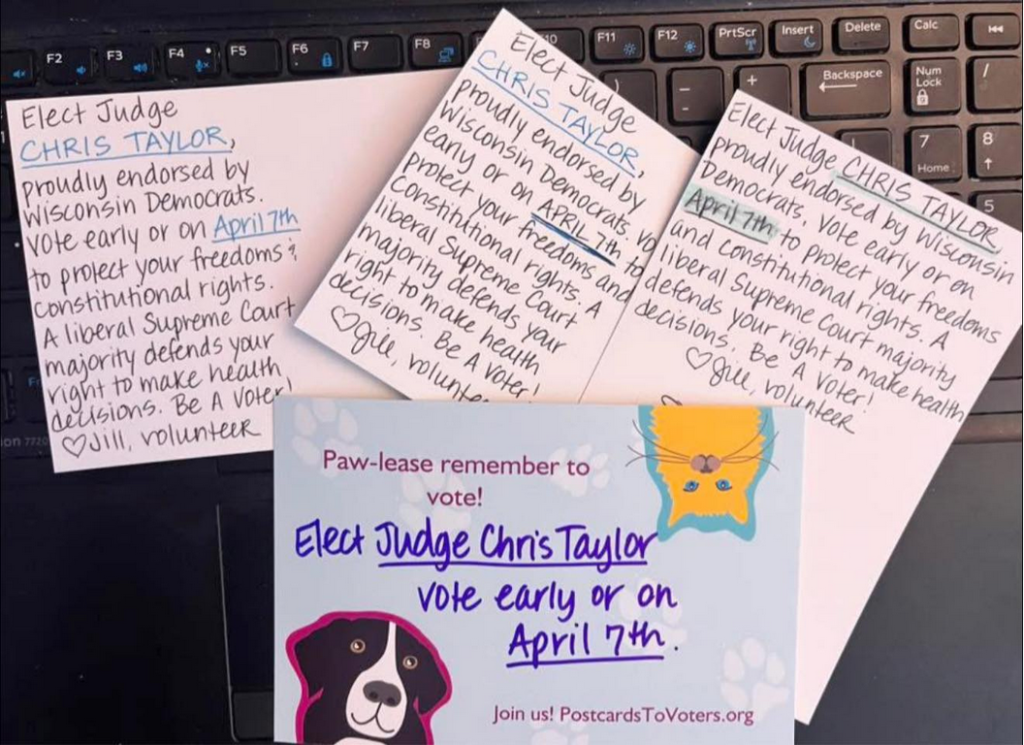 F2
F3
F4
F5
F6
F7
F8
F11
F12
PrtScr
Insert
Delete
Calc
Backspace
Num
Lock
/
7
Home
8
5
Elect Judge
CHRIS TAYLOR,
proudly endorsed by
Wisconsin Democrats.
Vote early or on April 7th
to protect your freedoms &
constitutional rights.
A liberal Supreme Court
majority defends your
right to make health
decisions. Be A Voter!
♡Jill, volunteer
Elect Judge
CHRIS TAYLOR,
proudly endorsed by
Wisconsin Democrats.
early or on APRIL 7th to
protect your freedoms and
Constitutional rights. A
liberal Supreme Court
majority defends your
right to make health
decisions. Be A Voter!
♡Jill,
Elect Judge CHRIS TAYLOR,
proudly endorsed by Wisconsin
Democrats. Vote early or on
April 7th to protect your freedoms
and constitutional rights. A
liberal Supreme Court majority
defends your right to make health
decisions. Be A Voter!
♡Jill, volunteer
Paw-lease remember to
vote!
Elect Judge Chris Taylor
vote early or on
April 7th.
Join us! PostcardsToVoters.org